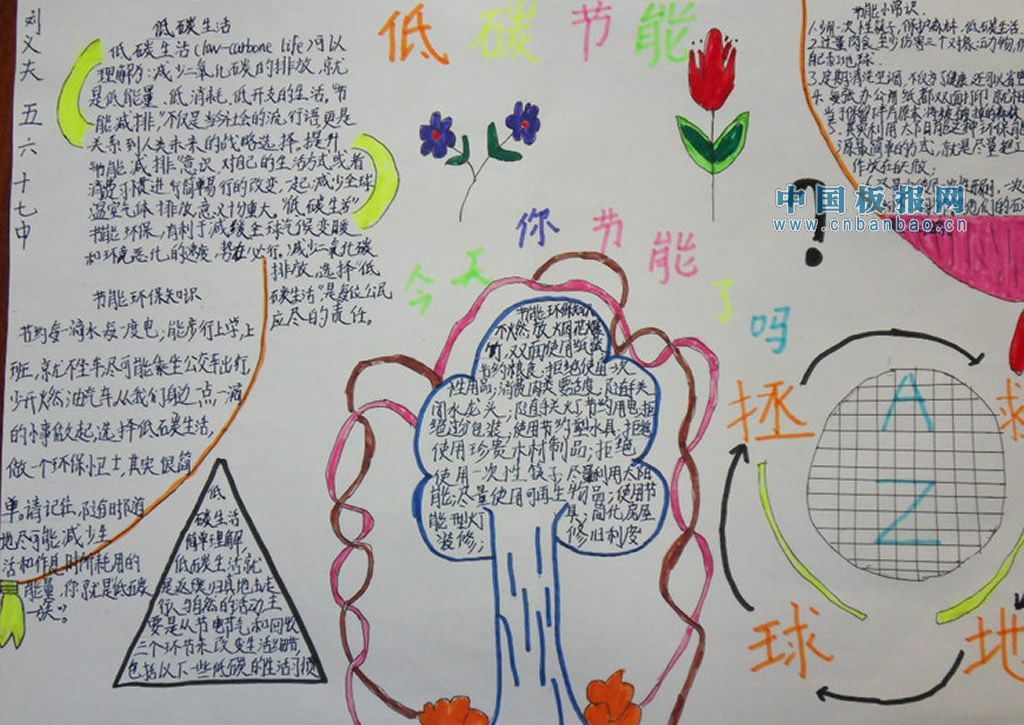 刘义夫 五六十七中
低碳节能
低碳生活
低碳生活(low-carbone life)可以
理解为:减少二氧化碳的排放,就
是低能量、低消耗、低开支的生活。"节
能减排",不仅是当今社会的流行语,更是
关系到人类未来的战略选择。提升
"节能减排"意识,对自己的生活方式或者
消费习惯进行简单易行的改变,一起减少全球
温室气体排放意义十分重大。"低碳生活"
节能环保,有利于减缓全球气候变暖
和环境恶化的速度,势在必行。减少二氧化碳
排放,选择"低
碳生活"是每位公民
应尽的责任。
节能环保知识
节约每一滴水每一度电;能步行上学,上
班,就不坐车尽可能乘坐公交车出行,
少开燃油汽车。从我们身边一点一滴
的小事做起,选择低碳生活,
做一个环保小卫士,其实很简
单。请记住,随时随
地尽可能减少生
活和作息时所耗用的
能量,你就是"低碳
一族"。
低
碳生活
简单理解,
低碳生活就
是返璞归真地去进
行人与自然的活动主
要是从节电节气和回收
三个环节来改变生活细节,
包括以下一些低碳的生活习惯
今天你节能了吗
节能环保知识
不燃放烟花爆
竹,双面使用纸张
节约粮食,拒绝使用一次
性用品;消费肉类要适度,随手关
闭水龙头;随手关灯节约用电;拒
绝过分包装,使用节约型水具,拒绝
使用珍贵木材制品;拒绝
使用一次性筷子;尽量利用太阳
能;尽量使用可再生物品;使用节
能型灯具,简化房屋
装修;修旧利废
节能小常识.
1.少用一次性筷子,保护森林,低碳生活
3.定期清洗空调,不仅为了健康,还可以省
4.复张办公用纸都双面打印
源最简单的方式,就是尽量把工
作放在白天做;
中国板报网
www.cnbanbao.cn
?
A
Z
拯救
地球